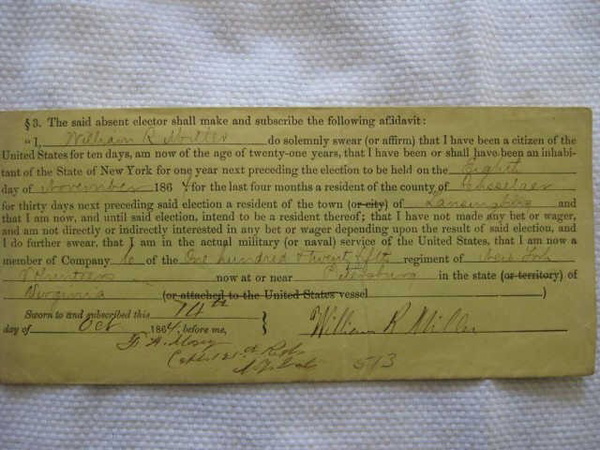 § 3. The said absent elector shall make and subscribe the following affidavit:
"I, William R Miller do solemnly swear (or affirm) that I have been a citizen of the
United States for ten days, am now of the age of twenty-one years, that I have been or shall have been an inhabi-
tant of the State of New York for one year next preceding the election to be held on the Eighth
day of November 1864 for the last four months a resident of the county of
for thirty days next preceding said election a resident of the town (or city) of Lansingburg and
that I am now, and until said election, intend to be a resident thereof; that I have not made any bet or wager,
and am not directly or indirectly interested in any bet or wager depending upon the result of said election, and
I do further swear, that I am in the actual military (or naval) service of the United States, that I am now a
member of Company of the One hundred & twenty fifth regiment of New York
Volunteers now at or near Petersburg in the state (or territory) of
Virginia (or attached to the United States vessel )
Sworn to and subscribed this 14th
day of Oct 1864, before me, William R Miller
Capt 125th Regt
N.Y. Vols 513